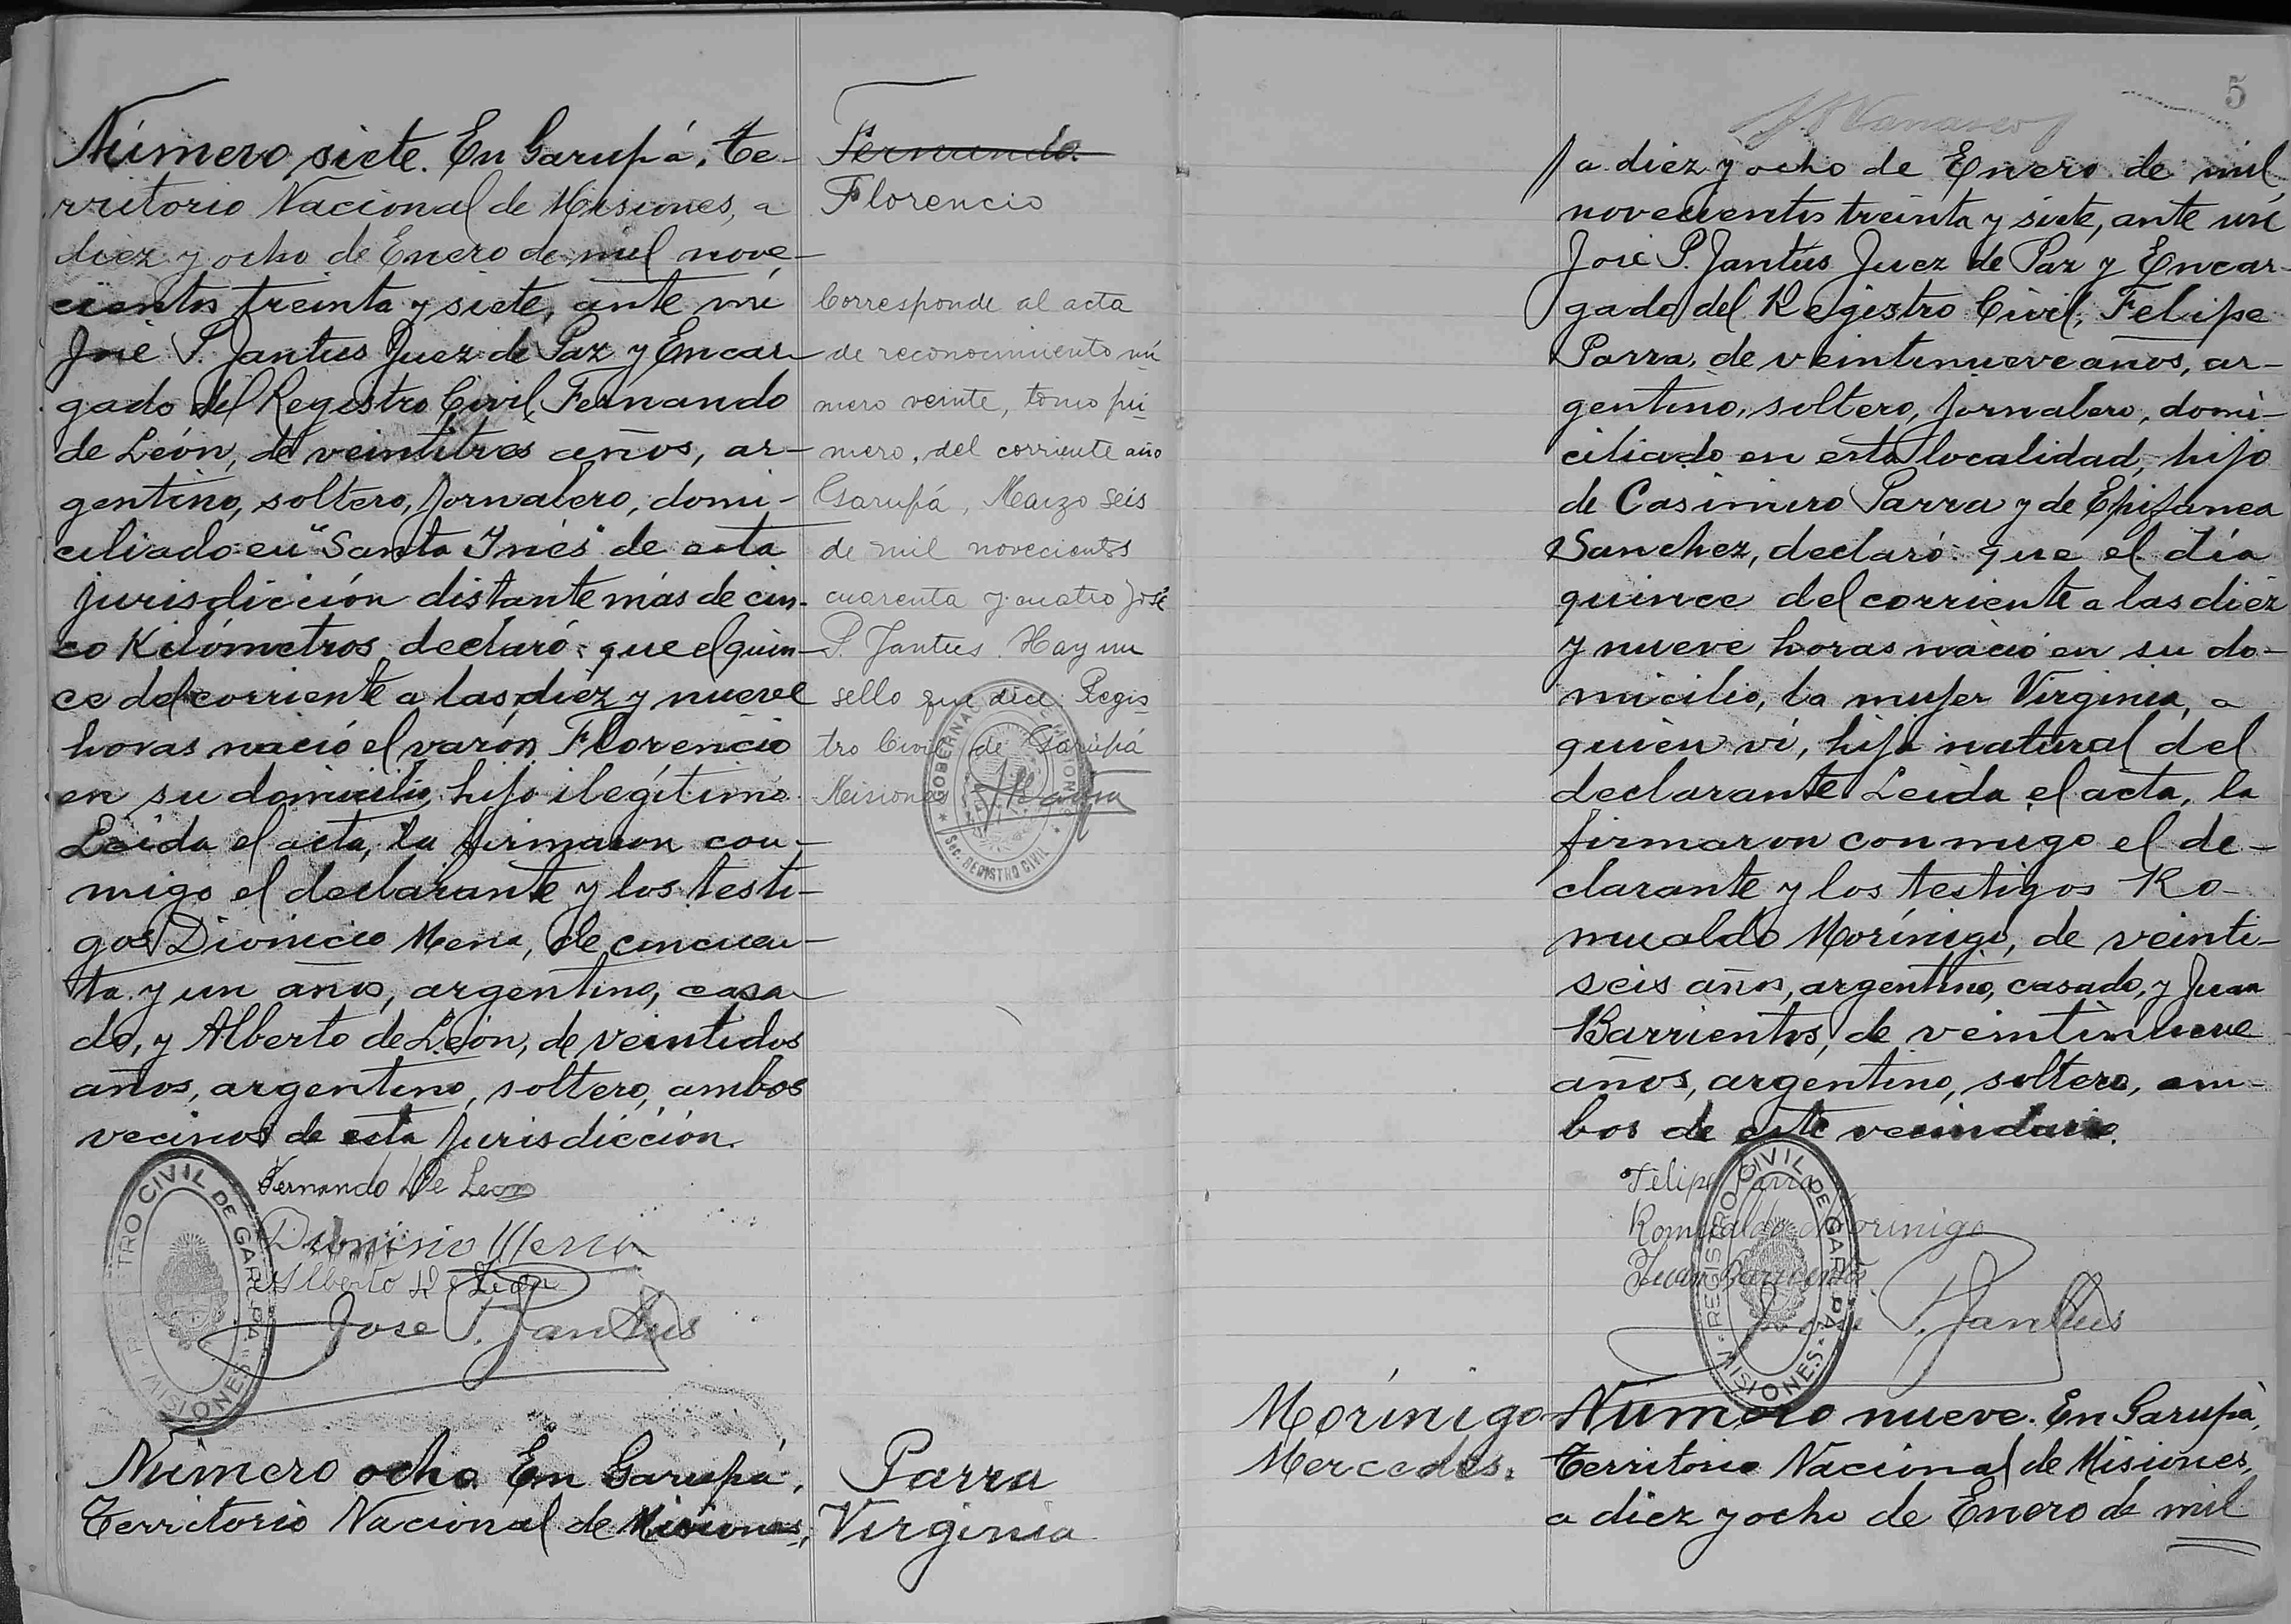 Número siete. En Garupá, te-
rritorio Nacional de Misiones, a
diez y ocho de Enero de mil nove-
cientos treinta y siete, ante mí
José P. Jantus Juez de Paz y Encar-
gado del Registro Civil, Fernando
de León, de veintitres años, ar-
gentino, soltero, jornalero, domi-
ciliado en "Santa Inés" de esta
jurisdicción distante más de cin-
co Kilómetros, declaró: que el quin-
ce del corriente a las diez y nueve
horas nació el varón Florencio
en su domicilio, hijo ilegítimo.
Leída el acta, la firmaron con-
migo el declarante y los testi-
gos Dionicio Mena, de cincuen-
ta y un años, argentino, casa-
do, y Alberto de León, de veintidos
años, argentino, soltero, ambos
vecinos de esta jurisdicción.
Fernando De Leon
Dionisio Mena
Alberto De Leon
Jose P. Jantus
REGISTRO CIVIL DE GARUPA MISIONES
Número ocho. En Garupá,
Territorio Nacional de Misiones,
Fernando
Florencio
Corresponde al acta
de reconocimiento nú
mero veinte, tomo pri
mero, del corriente año
Garupá, Marzo seis
de mil novecientos
cuarenta y cuatro José
P. Jantus. Hay un
sello que dice Regis
tro Civil de Garupá
Misiones
Sec. REGISTRO CIVIL
Parra
Virginia
5
a diez y ocho de Enero de mil
novecientos treinta y siete, ante mí
José P. Jantus Juez de Paz y Encar-
gado del Registro Civil, Felipe
Parra, de veintinueve años, ar-
gentino, soltero, jornalero, domi-
ciliado en esta localidad, hijo
de Casimiro Parra y de Epifanea
Sanchez, declaró: que el día
quince del corriente a las diez
y nueve horas nació en su do-
micilio, la mujer Virginia, a
quien ví, hija natural del
declarante. Leída el acta, la
firmaron conmigo el de-
clarante y los testigos Ro-
mualdo Morínigo, de veinti-
seis años, argentino, casado, y Juan
Barrientos, de veintinueve
años, argentino, soltero, am-
bos de este vecindario.
Felipe Parra
Romualdo Morinigo
Juan Barrientos
José P. Jantus
REGISTRO CIVIL DE GARUPA MISIONES
Morínigo
Mercedes.
Número nueve. En Garupá,
Territorio Nacional de Misiones,
a diez y ocho de Enero de mil